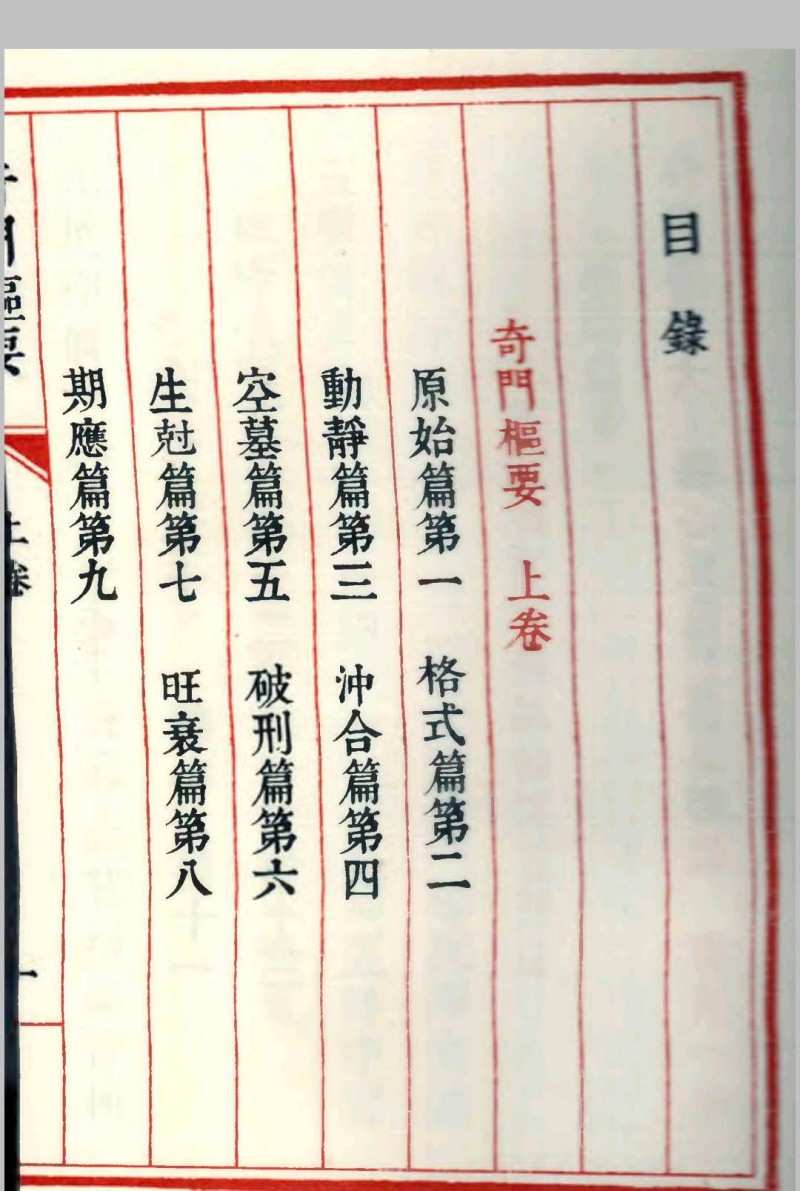 目錄
奇門樞要 上卷
原始篇第一 格式篇第二
動靜篇第三 沖合篇第四
空墓篇第五 破刑篇第六
生尅篇第七 旺衰篇第八
期應篇第九
門樞要 上卷 一